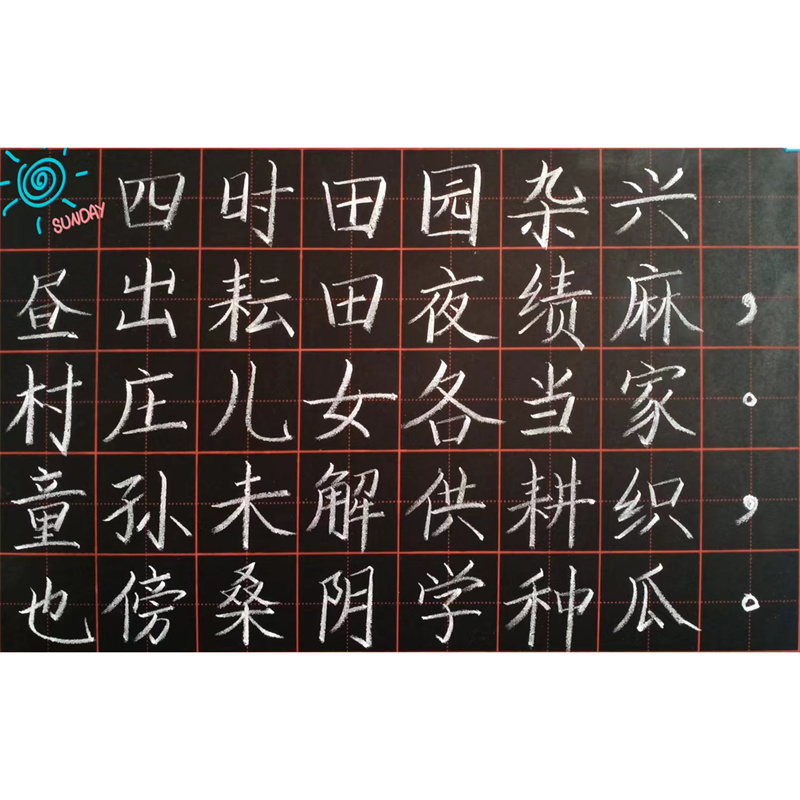 SUNDAY
四时田园杂兴
昼出耘田夜绩麻，
村庄儿女各当家。
童孙未解供耕织，
也傍桑阴学种瓜。